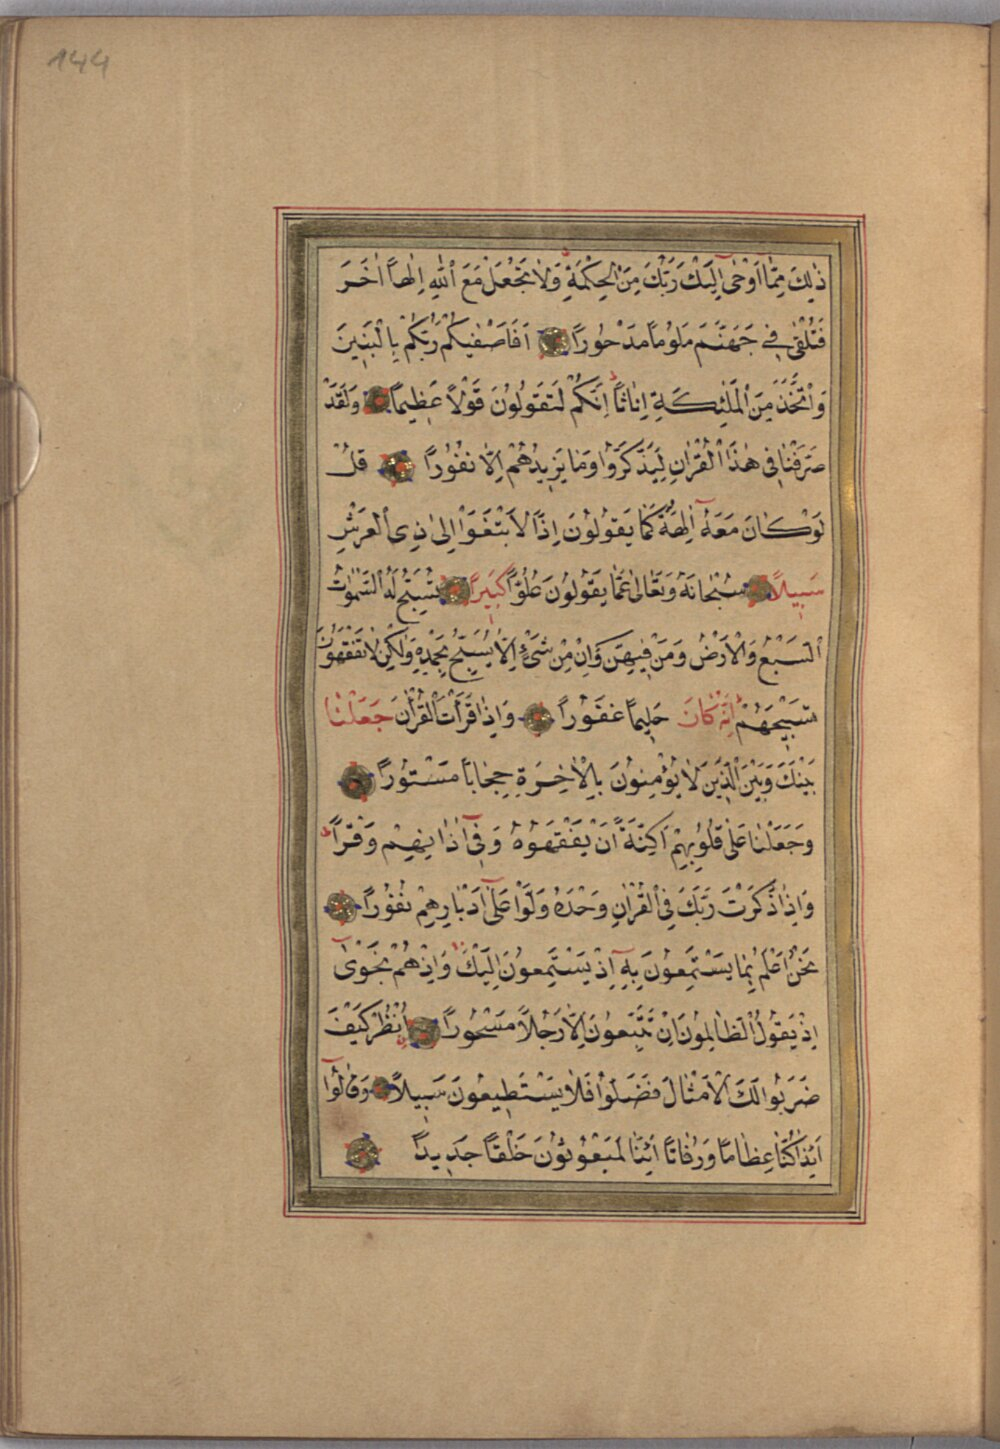 144
ذٰلِكَ مِمَّٓا اَوْحٰٓى اِلَيْكَ رَبُّكَ مِنَ الْحِكْمَةِ وَلَا تَجْعَلْ مَعَ اللّٰهِ اِلٰهًا اٰخَرَ
فَتُلْقٰى فِي جَهَنَّمَ مَلُومًا مَدْحُورًا اَفَاَصْفٰيكُمْ رَبُّكُمْ بِالْبَنٖينَ
وَاتَّخَذَ مِنَ الْمَلٰٓئِكَةِ اِنَاثًا اِنَّكُمْ لَتَقُولُونَ قَوْلًا عَظِيمًا وَلَقَدْ
صَرَّفْنَا فِي هٰذَا الْقُرْاٰنِ لِيَذَّكَّرُوا وَمَا يَزِيدُهُمْ اِلَّا نُفُورًا قُلْ
لَوْ كَانَ مَعَهُٓ اٰلِهَةٌ كَمَا يَقُولُونَ اِذًا لَابْتَغَوْا اِلٰى ذِي الْعَرْشِ
سَبِيلًا سُبْحَانَهُ وَتَعَالٰى عَمَّا يَقُولُونَ عُلُوًّا كَبِيرًا تُسَبِّحُ لَهُ السَّمٰوَاتُ
السَّبْعُ وَالْاَرْضُ وَمَنْ فِيهِنَّ وَاِنْ مِنْ شَيْءٍ اِلَّا يُسَبِّحُ بِحَمْدِهٖ وَلٰكِنْ لَا تَفْقَهُونَ
تَسْبِيحَهُمْ اِنَّهُ كَانَ حَلِيمًا غَفُورًا وَاِذَا قَرَأْتَ الْقُرْاٰنَ جَعَلْنَا
بَيْنَكَ وَبَيْنَ الَّذِينَ لَا يُؤْمِنُونَ بِالْاٰخِرَةِ حِجَابًا مَسْتُورًا
وَجَعَلْنَا عَلٰى قُلُوبِهِمْ اَكِنَّةً اَنْ يَفْقَهُوهُ وَفِٓي اٰذَانِهِمْ وَقْرًا
وَاِذَا ذَكَرْتَ رَبَّكَ فِي الْقُرْاٰنِ وَحْدَهُ وَلَّوْا عَلٰٓى اَدْبَارِهِمْ نُفُورًا
نَحْنُ اَعْلَمُ بِمَا يَسْتَمِعُونَ بِهٖٓ اِذْ يَسْتَمِعُونَ اِلَيْكَ وَاِذْ هُمْ نَجْوٰٓى
اِذْ يَقُولُ الظَّالِمُونَ اِنْ تَتَّبِعُونَ اِلَّا رَجُلًا مَسْحُورًا اُنْظُرْ كَيْفَ
ضَرَبُوا لَكَ الْاَمْثَالَ فَضَلُّوا فَلَا يَسْتَطِيعُونَ سَبِيلًا وَقَالُٓوا
ءَاِذَا كُنَّا عِظَامًا وَرُفَاتًا اَئِنَّا لَمَبْعُوثُونَ خَلْقًا جَدِيدًا